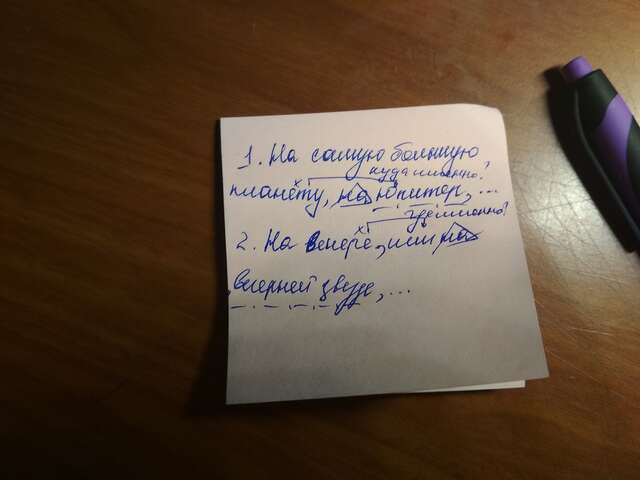 1. На самую большую
куда именно?
планету, на Юпитер, ...
где именно?
2. На Венере, или на
Вечерней звезде, ...